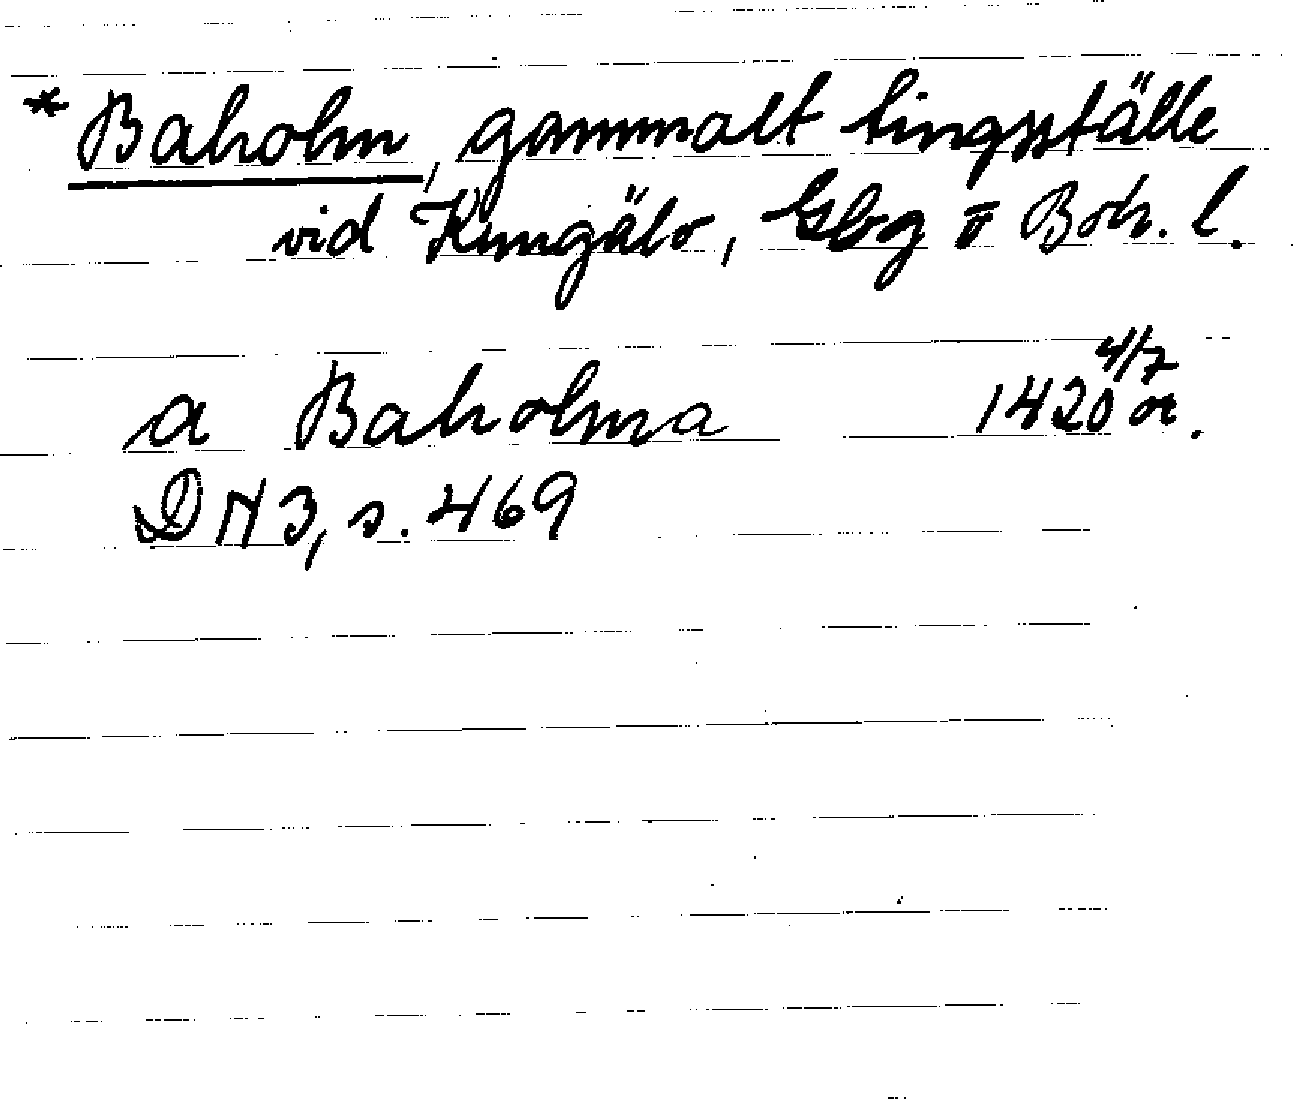 * Baholm, gammalt tingsställe
vid Kungälv, Gbg o Boh. l.
a Baholma 1420 4/7 or.
DN 3, s. 469